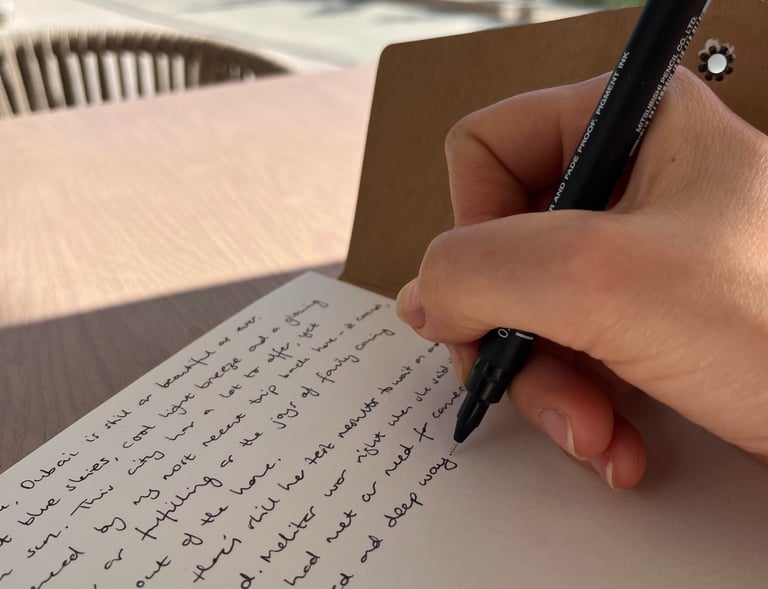 Dubai is still as beautiful as ever.
blue skies, cool light breeze and a glowing
sun. This city has a lot to offer, yet
by my most recent trip back here, it cannot
as fulfilling as the joys of family
out of the home.
there's still her test results to wait on
was right when she said
had met as need for
and deep way.
AND FADE PROOF. PIGMENT INK
MITSUBISHI PENCIL CO., LTD.